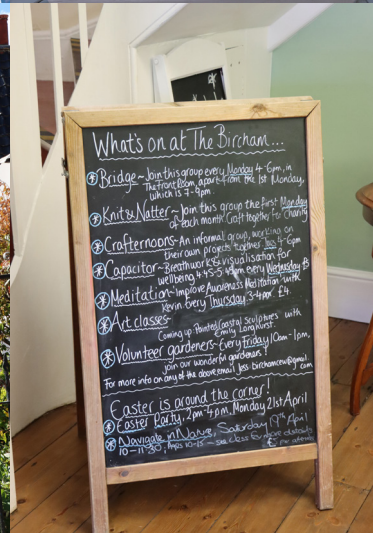 What's on at The Bircham...
Bridge ~ Join this group every Monday 4-6pm, in
The Front Room, apart from the 1st Monday,
which is 7-9pm.
Knit & Natter ~ Join this group the first Monday
of each month. Craft together for Charity
Crafternoons ~ An informal group, working on
their own projects together, 4-6pm
Capacitor ~ Breathwork & visualisation for
wellbeing 4.45-5.45pm every Wednesday £5
Meditation ~ Improve Awareness Meditation with
Kevin every Thursday 3-4pm. £4
Art classes ~
Coming up: Painted Coastal sculptures with
Emily Longhurst.
Volunteer gardeners ~ Every Friday 10am-1pm,
join our wonderful gardeners!
For more info on any of the above, email
Easter is around the corner!
Easter Party, 2pm-4pm, Monday 21st April
Navigate in Nature, Saturday 19th April
10-11.30, Ages 10-15 - see class for more details